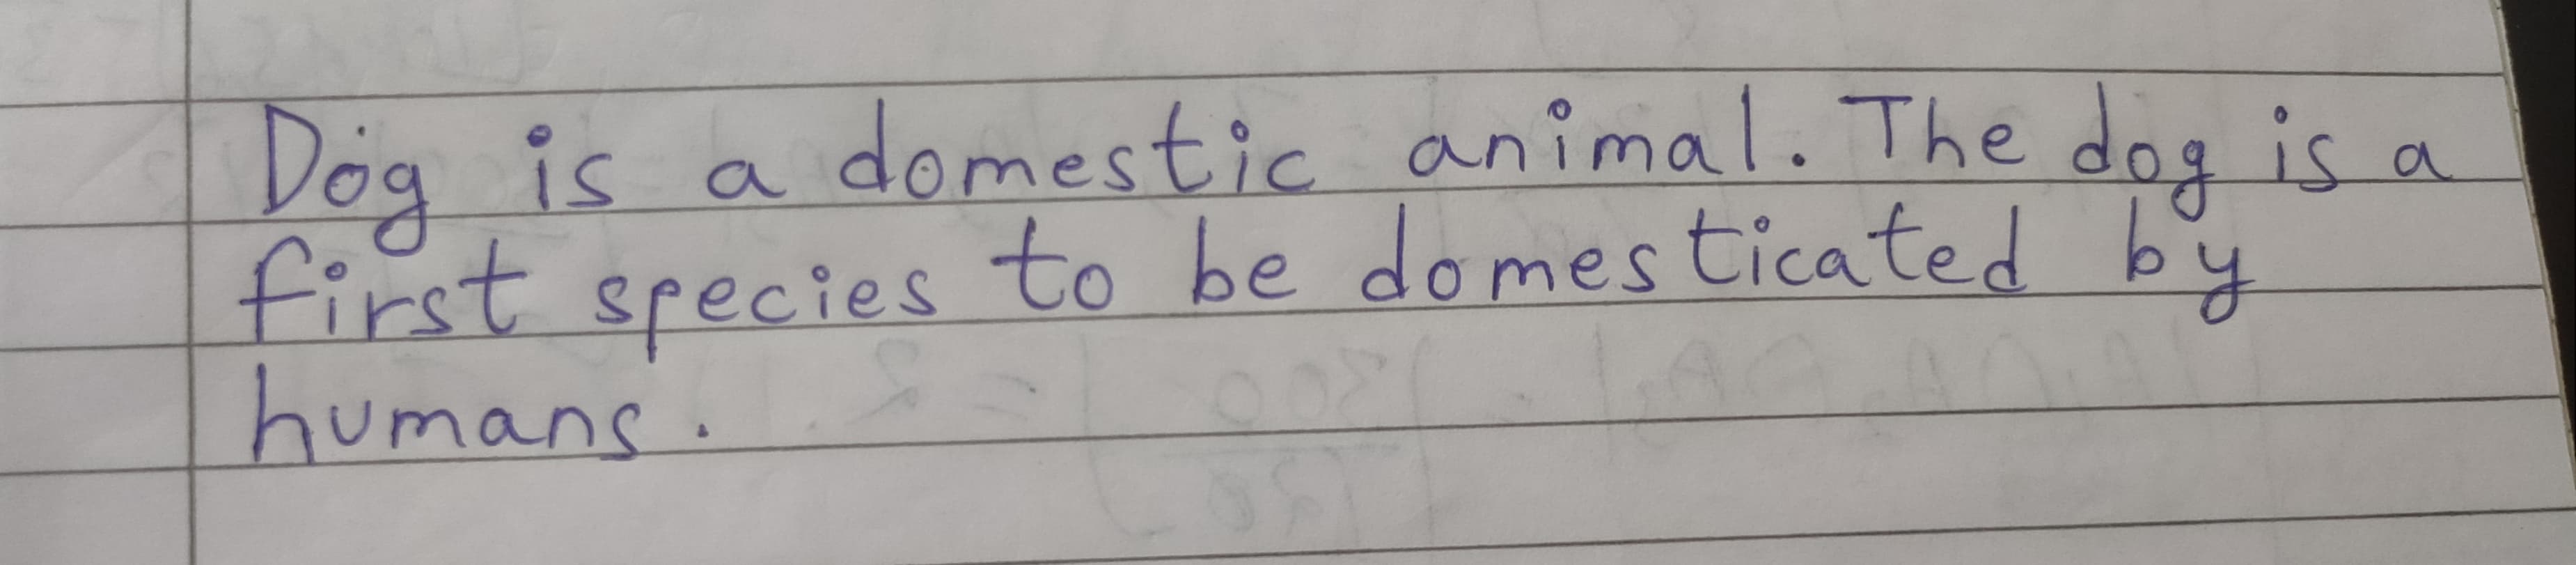 Dog is a domestic animal. The dog is a
first species to be domesticated by
humans.